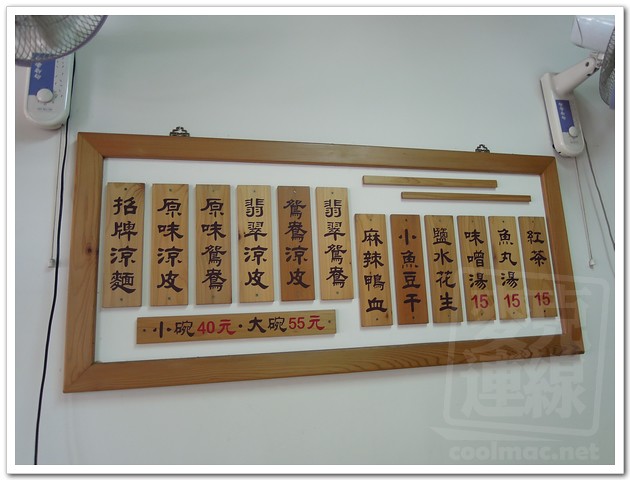 招牌涼麵
原味涼皮
原味鴛鴦
翡翠涼皮
鴛鴦涼皮
翡翠鴛鴦
麻辣鴨血
小魚豆干
鹽水花生
味噌湯15
魚丸湯15
紅茶15
小碗40元·大碗55元
連線
coolmac.net